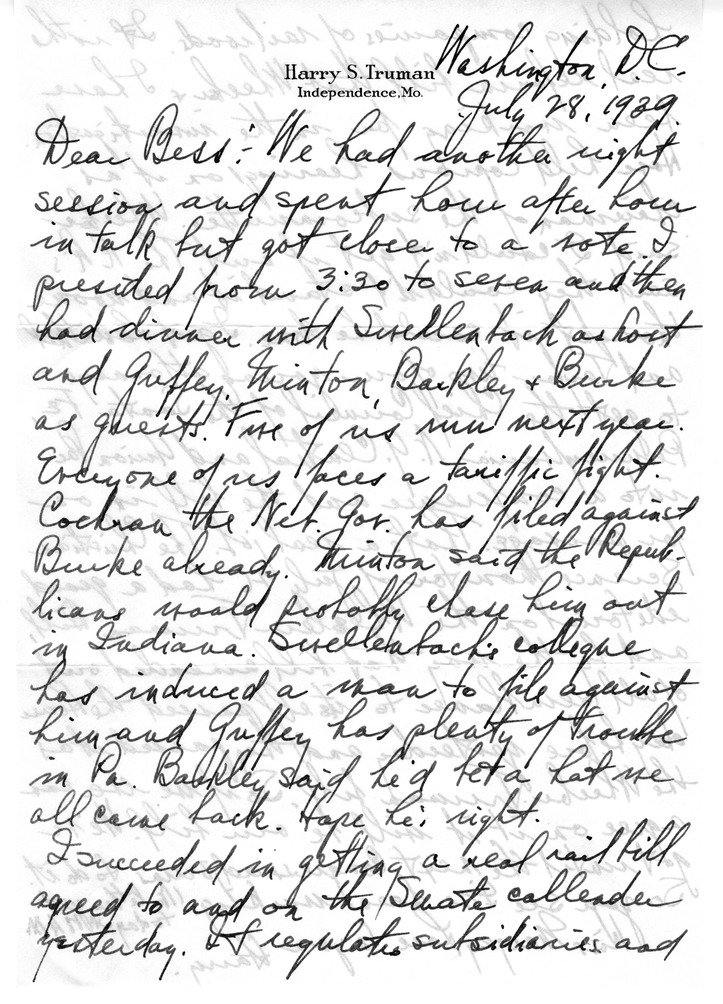 Harry S. Truman
Independence, Mo.
Washington, D.C.
July 28, 1939.
Dear Bess:- We had another night
session and spent hour after hour
in talk but got closer to a vote. I
presided from 3:30 to seven and then
had dinner with Swellenbach as host
and Guffey, Minton, Barkley & Burke
as guests. Five of us run next year.
Everyone of us faces a tariffic fight.
Cochran the Neb. Gov. has filed against
Burke already. Minton said the Repub-
licans would probably chase him out
in Indiana. Swellenbach's collegue
has induced a man to file against
him and Guffey has plenty of trouble
in Pa. Barkley said he'd bet a hat we
all came back. Hope he's right.
I succeeded in getting a real rail bill
agreed to and on the Senate callender
yesterday. It regulates subsidiaries and